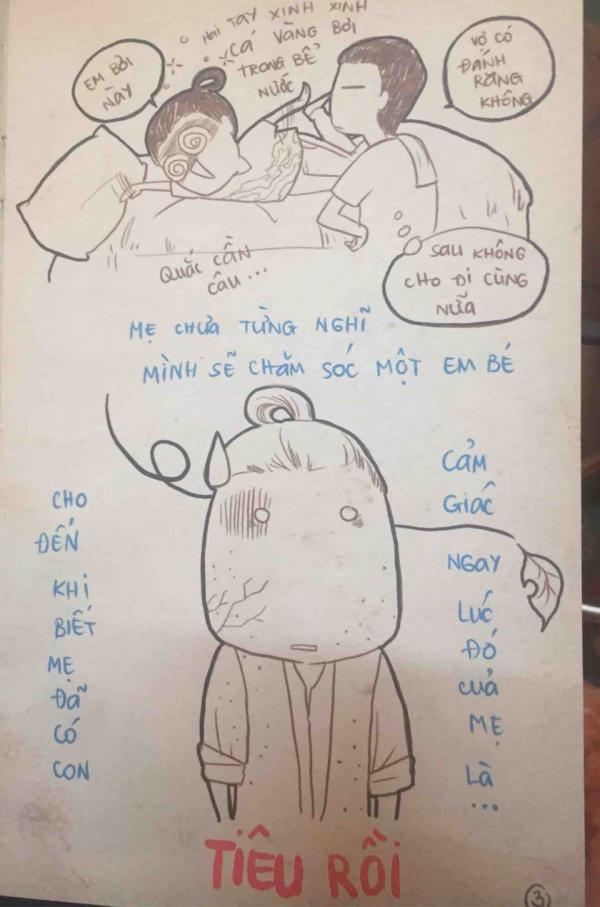 Hai TAY XINH XINH
CÁ VÀNG BƠI
TRONG BỂ
NƯỚC
EM BƠI
NÀY
VỢ CÓ
ĐÁNH
RĂNG
KHÔNG
QUẮC CẦN
CÂU...
SAU KHÔNG
CHO ĐI CÙNG
NỮA
MẸ CHƯA TỪNG NGHĨ
MÌNH SẼ CHĂM SÓC MỘT EM BÉ
CHO
ĐẾN
KHI
BIẾT
MẸ
ĐÃ
CÓ
CON
CẢM
GIÁC
NGAY
LÚC
ĐÓ
CUẢ
MẸ
LÀ
...
TIÊU RỒI
3